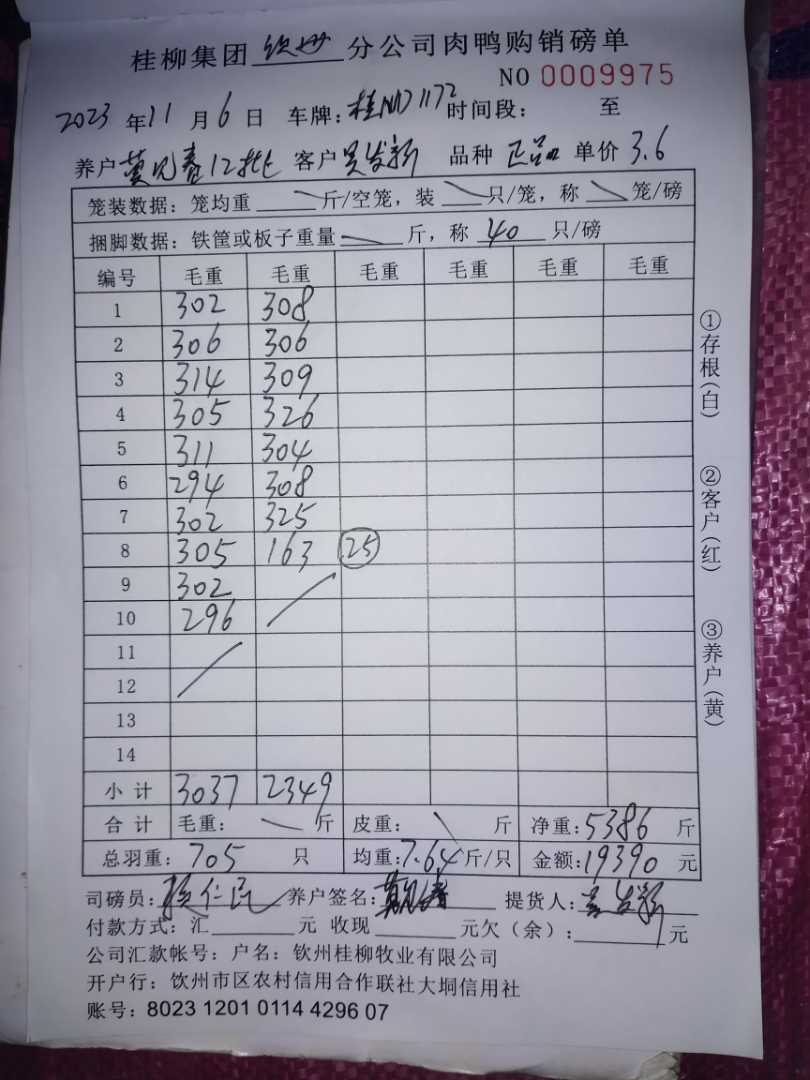 桂柳集团 钦州 分公司肉鸭购销磅单
NO 0009975
2023 年 11 月 6 日 车牌: 桂 1172 时间段: 至
养户 莫见春12批 客户 吴发新 品种 正品 单价 3.6
笼装数据: 笼均重 斤/空笼, 装 只/笼, 称 笼/磅
捆脚数据: 铁筐或板子重量 斤, 称 40 只/磅
编号 毛重 毛重 毛重 毛重 毛重 毛重
1 302 308
2 306 306
3 314 309
4 305 326
5 311 304
6 294 308
7 302 325
8 305 163 25
9 302
10 296
11
12
13
14
小计 3037 2349
合计 毛重: 斤 皮重: 斤 净重: 5386 斤
总羽重: 705 只 均重: 7.64 斤/只 金额: 19390 元
司磅员: 养户签名: 莫见春 提货人: 吴发新
付款方式: 汇 元 收现 元欠(余): 元
公司汇款帐号: 户名: 钦州桂柳牧业有限公司
开户行: 饮州市区农村信用合作联社大垌信用社
账号: 8023 1201 0114 4296 07
①存根(白)
②客户(红)
③养户(黄)